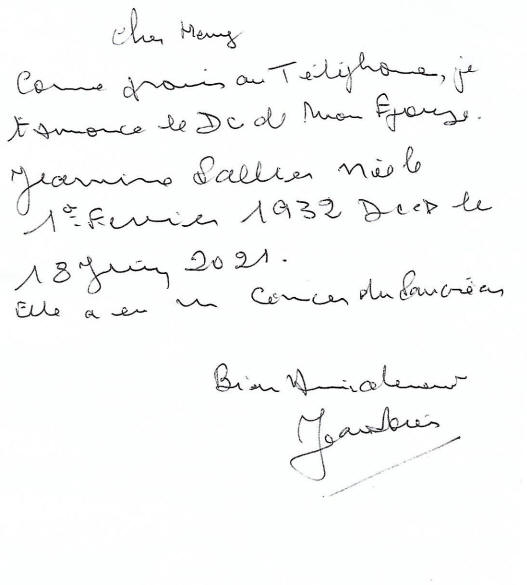 Cher
Comme au Téléphone, je
t'annonce le Dc de Mon Epouse.
Jeannine née le
1er Fevrier 1932 Dcd le
18 Juin 2021.
Elle a eu un Cancer du Pancréas
Bien Amicalement